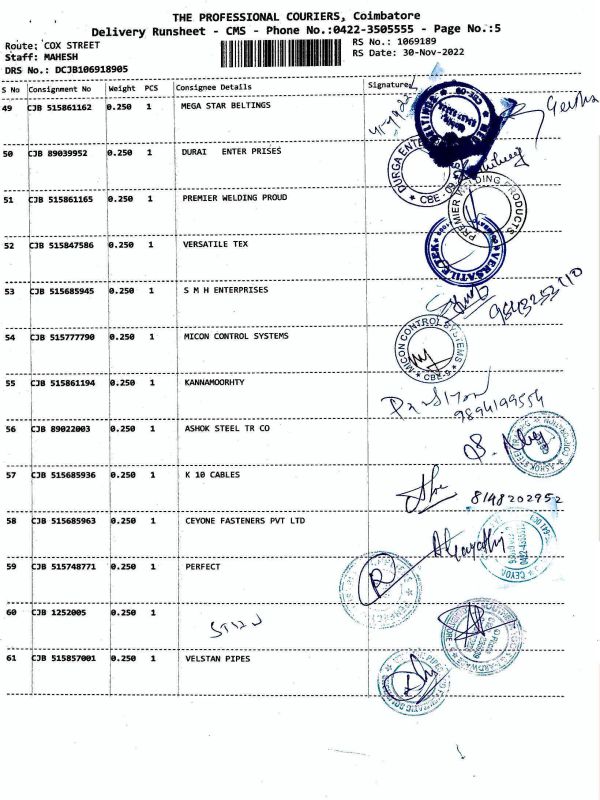 THE PROFESSIONAL COURIERS, Coimbatore
Delivery Runsheet - CMS - Phone No.:0422-3505555 - Page No.:5
Route: COX STREET
RS No.: 1069189
Staff: MAHESH
RS Date: 30-Nov-2022
DRS No.: DCJB106918905
S No Consignment No Weight PCS Consignee Details Signature
49 CJB 515861162 0.250 1 MEGA STAR BELTINGS
Geetha
50 CJB 89039952 0.250 1 DURAI ENTER PRISES
DURGA ENTER
CBE
51 CJB 515861165 0.250 1 PREMIER WELDING PROUD
PREMIER WELDING PRODUCTS
52 CJB 515847586 0.250 1 VERSATILE TEX
VERSATILE TEX
53 CJB 515685945 0.250 1 S M H ENTERPRISES
54 CJB 515777790 0.250 1 MICON CONTROL SYSTEMS
MICON CONTROL SYSTEMS
CBE-9
55 CJB 515861194 0.250 1 KANNAMOORHTY
9894199554
56 CJB 89022003 0.250 1 ASHOK STEEL TR CO
ASHOK STEEL TRADING CORPORATION
57 CJB 515685936 0.250 1 K 10 CABLES
8148202952
58 CJB 515685963 0.250 1 CEYONE FASTENERS PVT LTD
59 CJB 515748771 0.250 1 PERFECT
60 CJB 1252005 0.250 1
61 CJB 515857001 0.250 1 VELSTAN PIPES